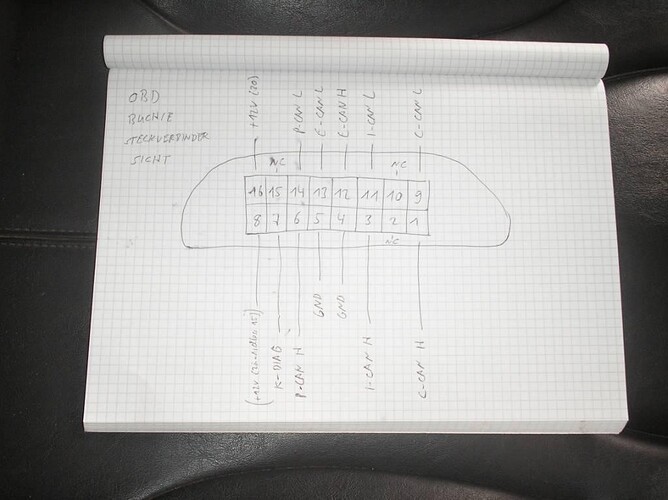 OBD
BUCHSE
STECKVERBINDER
SICHT
+12V (30)
NC
P-CAN L
E-CAN L
E-CAN H
I-CAN L
NC
C-CAN L
16 15 14 13 12 11 10 9
8 7 6 5 4 3 2 1
NC
K-DIAG
P-CAN H
GND
GND
I-CAN H
C-CAN H